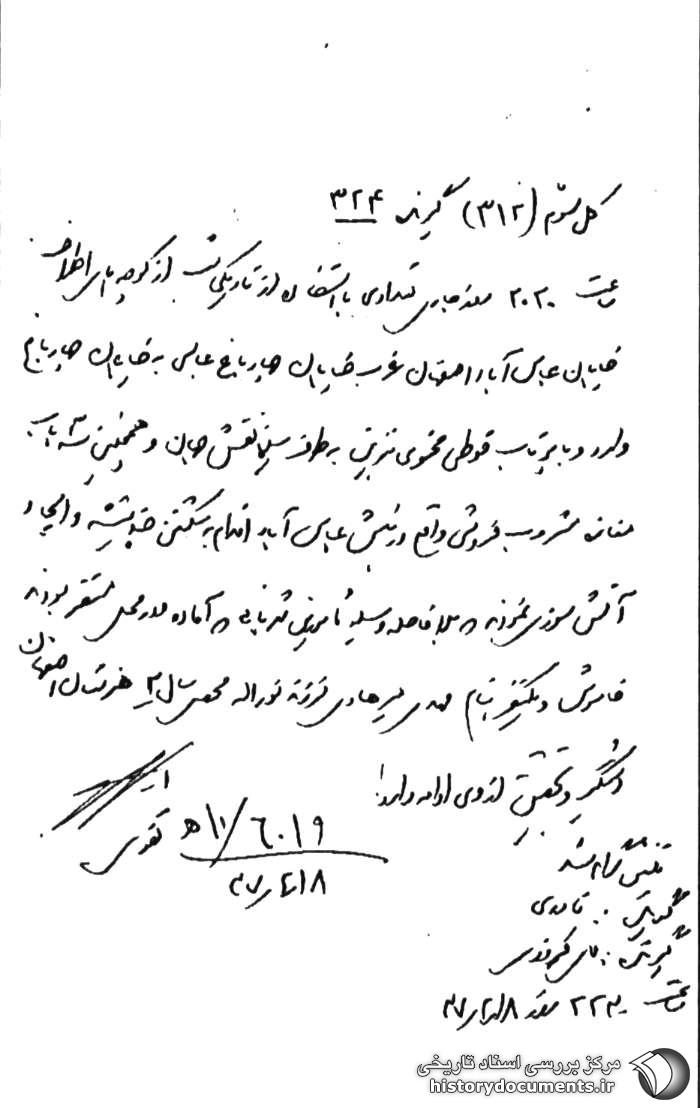 کل سوم (۳۱۲) گیرنده ۳۲۴
ساعت ۲۰۲۰ روز جاری تعدادی با استفاده از تاریکی شب از کوچه های اطراف
خیابان عباس آباد اصفهان غرب خیابان چهارباغ عباسی به خیابان چهارباغ
وارد و با پرتاب قوطی محتوی بنزین به طرف سینما نقش جهان و همچنین سه باب
مغازه مشروب فروشی واقع در نبش عباس آباد اقدام به شکستن چند شیشه و ایجاد
آتش سوزی نموده که بلافاصله وسیله مأمورین شهربانی که آماده در محل مستقر بودند
خاموش و یکنفر بنام مهدی میرهادی فرزند نوراله محصل سال ۲ هنرستان اصفهان
دستگیر و تحقیق از وی ادامه دارد.
۶۰۱۹/۱۰ ﻫ
تقوی
۳۷/۲/۱۸
تلفن گرام شد
گوینده: قائدی
گیرنده:
ساعت ۲۲۳۰ روز ۳۷/۲/۱۸
مرکز بررسی اسناد تاریخی
historydocuments.ir